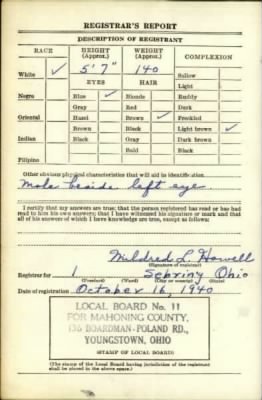 REGISTRAR'S REPORT
DESCRIPTION OF REGISTRANT
RACE HEIGHT (Approx.) WEIGHT (Approx.) COMPLEXION
White ✓ 5' 7" 140 Sallow
EYES HAIR Light
Negro Blue ✓ Blonde Ruddy
Gray Red Dark
Oriental Hazel Brown ✓ Freckled
Brown Black Light brown ✓
Indian Black Gray Dark brown
Bald Black
Filipino
Other obvious physical characteristics that will aid in identification
Mole beside left eye.
I certify that my answers are true; that the person registered has read or has had
read to him his own answers; that I have witnessed his signature or mark and that
all of his answers of which I have knowledge are true, except as follows:
Mildred L. Howell
(Signature of registrar)
Registrar for 1 Sebring Ohio
(Precinct) (Ward) (City or county) (State)
Date of registration October 16, 1940
LOCAL BOARD No. 11
FOR MAHONING COUNTY,
BOARDMAN-POLAND RD.,
YOUNGSTOWN, OHIO
(STAMP OF LOCAL BOARD)
(The stamp of the Local Board having jurisdiction of the registrant
shall be placed in the above space.)